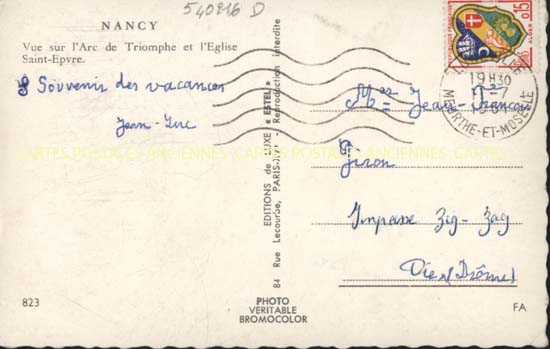 540816 D
NANCY
Vue sur l'Arc de Triomphe et l'Eglise
Saint-Epvre.
Souvenir des vacances
Jean-Luc
EDITIONS de LUXE « ESTEL »
84 Rue Lecourbe, PARIS-XV - Reproduction interdite
0,15
19H30
MEURTHE-ET-MOSELLE
Jean-François
Giron
Impasse Zig-Zag
Die (Drôme)
CARTES POSTALES ANCIENNES CARTES POSTALES ANCIENNES CARTES
823
PHOTO
VERITABLE
BROMOCOLOR
FA